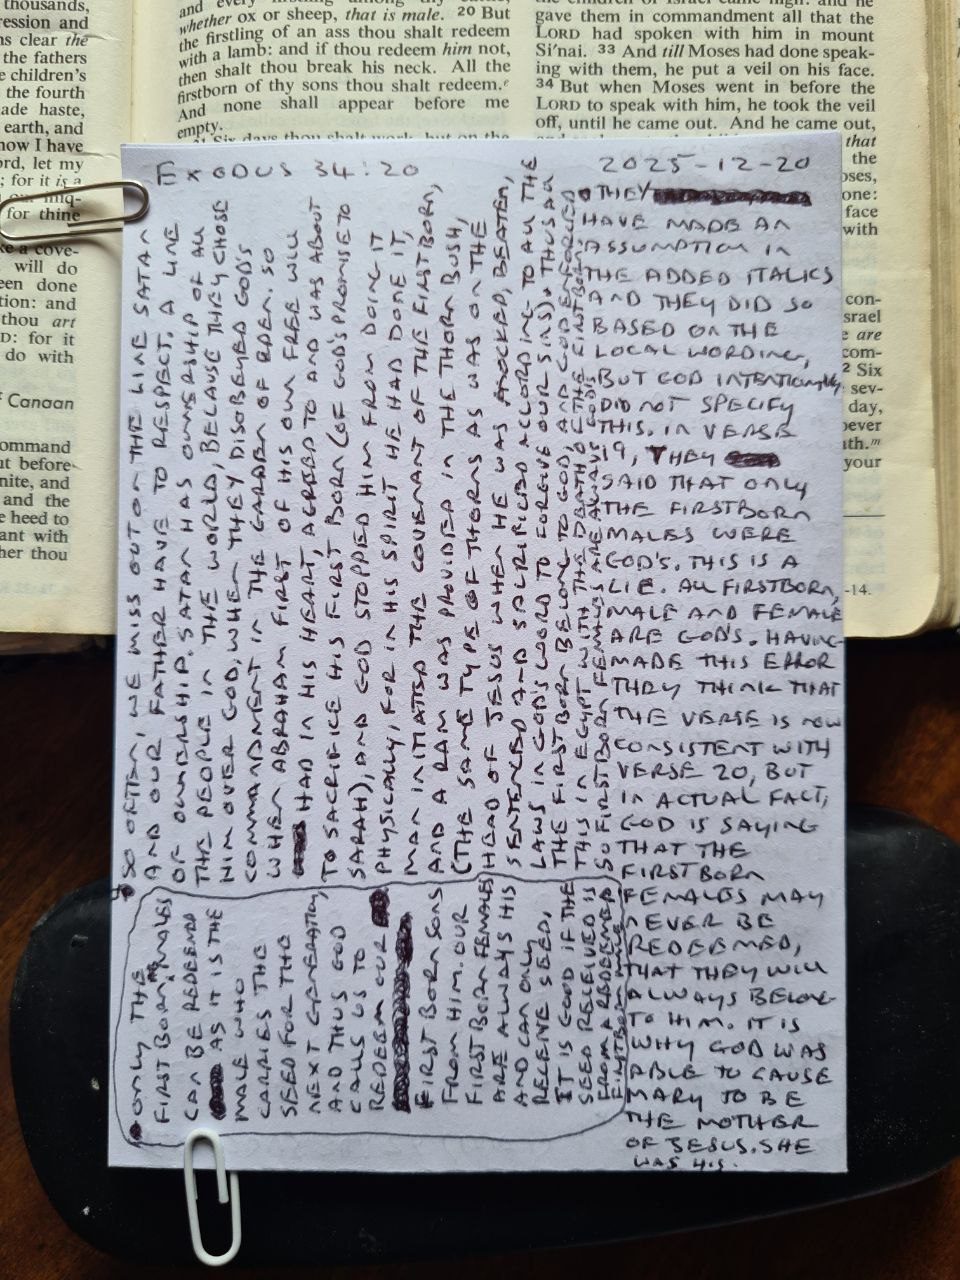 thousands,
ression and
ns clear the
the fathers
e children's
the fourth
ade haste,
earth, and
now I have
ord, let my
; for it is a
for thine
ke a cove-
will do
een done
tion: and
thou art
D: for it
do with
Canaan
ommand
ut before
nite, and
and the
e heed to
ant with
her thou
whether ox or sheep, that is male. 20 But
the firstling of an ass thou shalt redeem
with a lamb: and if thou redeem him not,
then shalt thou break his neck. All the
firstborn of thy sons thou shalt redeem.
And none shall appear before me
empty.
gave them in commandment all that the
LORD had spoken with him in mount
Si'nai. 33 And till Moses had done speak-
ing with them, he put a veil on his face.
34 But when Moses went in before the
LORD to speak with him, he took the veil
off, until he came out. And he came out,
that
the
oses,
one:
face
with
con-
srael
e are
com-
2 Six
sev-
day,
oever
ath.m
your
-14.
EXODUS 34:20
2025-12-20
THEY
HAVE MADE AN
ASSUMPTION IN
THE ADDED ITALICS
AND THEY DID SO
BASED ON THE
LOCAL WORDING,
BUT GOD INTENTIONALLY
DID NOT SPECIFY
THIS. IN VERSE
19, THEY
SAID THAT ONLY
THE FIRSTBORN
MALES WERE
GOD'S. THIS IS A
LIE. ALL FIRSTBORN,
MALE AND FEMALE
ARE GOD'S. HAVING
MADE THIS ERROR
THEY THINK THAT
THE VERSE IS NOW
CONSISTENT WITH
VERSE 20, BUT
IN ACTUAL FACT,
GOD IS SAYING
THAT THE
FIRSTBORN
FEMALES MAY
NEVER BE
REDEEMED,
THAT THEY WILL
ALWAYS BELONG
TO HIM. IT IS
WHY GOD WAS
ABLE TO CAUSE
MARY TO BE
THE MOTHER
OF JESUS. SHE
WAS HIS.
ONLY THE
FIRSTBORN MALES
CAN BE REDEEMED
AS IT IS THE
MALE WHO
CARRIES THE
SEED FOR THE
NEXT GENERATION,
AND THUS GOD
CALLS US TO
REDEEM OUR
FIRSTBORN SONS
FROM HIM. OUR
FIRSTBORN FEMALES
ARE ALWAYS HIS
AND CAN ONLY
RECEIVE SEED.
IT IS GOOD IF THE
SEED RECEIVED IS
FROM A REDEEMED
FIRSTBORN MALE
SO OFTEN, WE MISS OUT ON THE LINE SATAN
AND OUR FATHER HAVE TO RESPECT, A LINE
OF OWNERSHIP. SATAN HAS OWNERSHIP OF ALL
THE PEOPLE IN THE WORLD, BECAUSE THEY CHOSE
HIM OVER GOD, WHEN THEY DISOBEYED GOD'S
COMMANDMENT IN THE GARDEN OF EDEN. SO
WHEN ABRAHAM FIRST OF HIS OWN FREE WILL
HAD IN HIS HEART, AGREED TO AND WAS ABOUT
TO SACRIFICE HIS FIRST BORN (OF GOD'S PROMISE TO
SARAH), AND GOD STOPPED HIM FROM DOING IT
PHYSICALLY, FOR IN HIS SPIRIT HE HAD DONE IT,
MAN INITIATED THE COVENANT OF THE FIRSTBORN,
AND A RAM WAS PROVIDED IN THE THORN BUSH,
(THE SAME TYPE OF THORNS AS WAS ON THE
HEAD OF JESUS WHEN HE WAS MOCKED, BEATEN,
SENTENCED AND SACRIFICED ACCORDING TO ALL THE
LAWS IN GOD'S WORD TO FORGIVE OUR SINS). THUS
THE FIRSTBORN BELONG TO GOD, AND GOD ENFORCED
THIS IN EGYPT WITH THE DEATH OF THE FIRSTBORN.
SO FIRSTBORN FEMALES ARE ALWAYS GOD'S